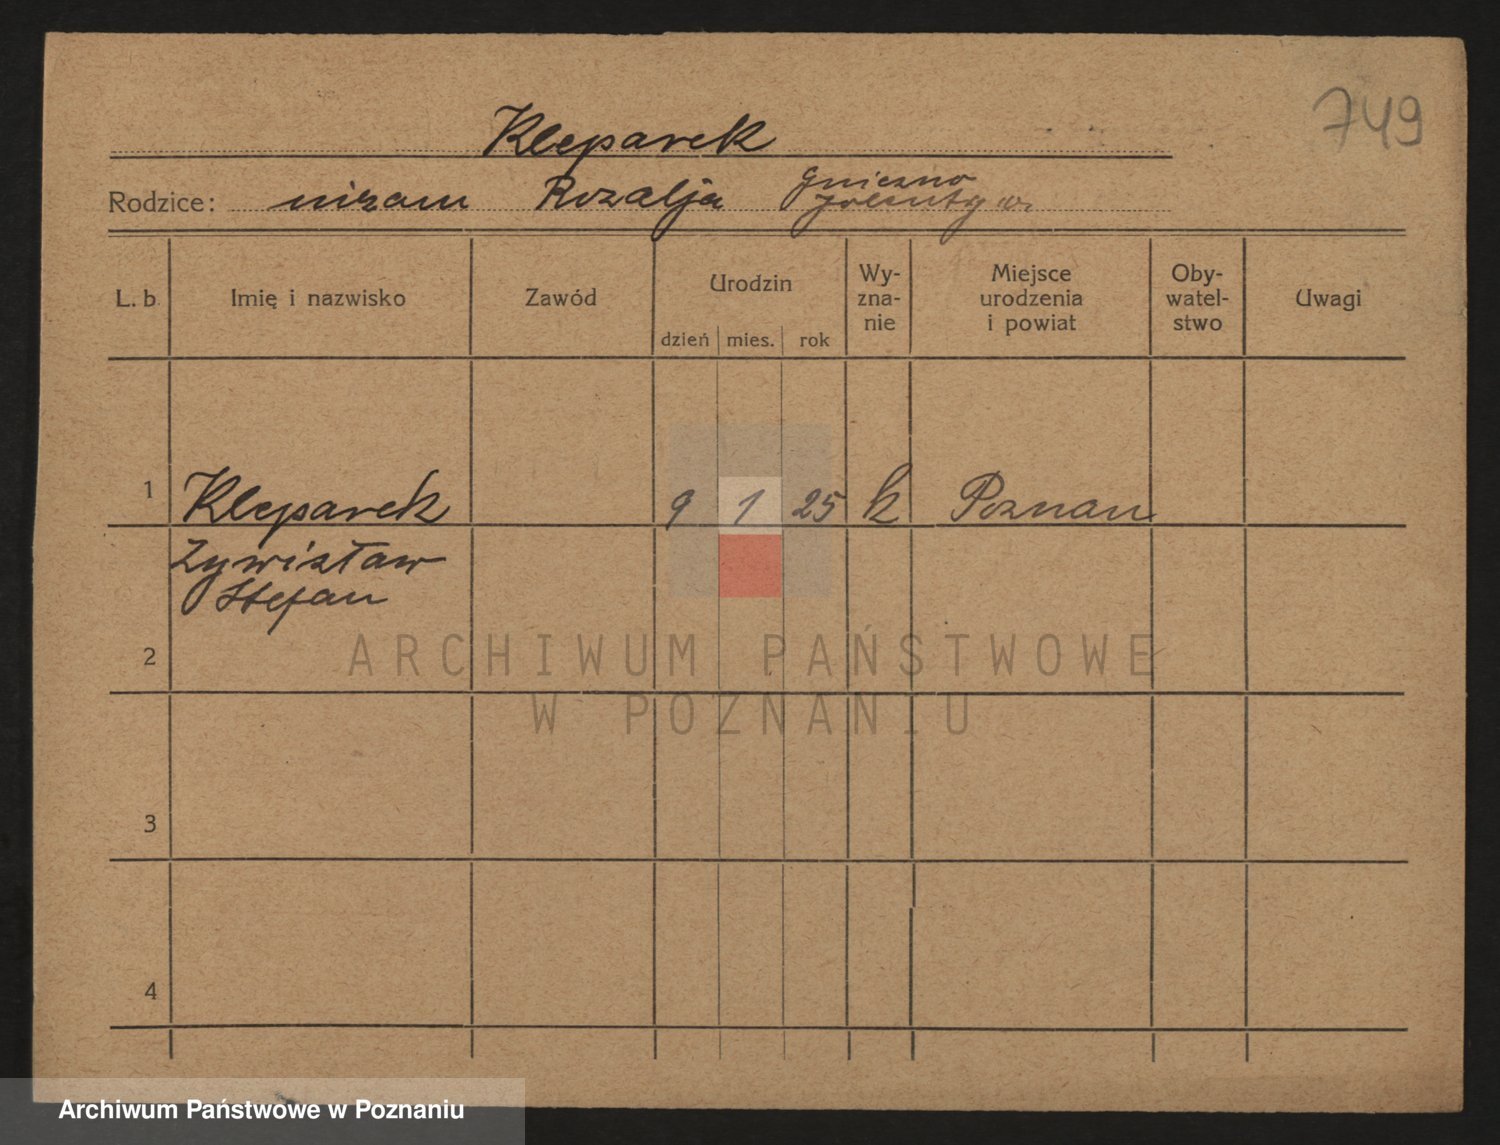 749
Kleparek
Rodzice: niezam Rozalja Gniezno
L. b. Imię i nazwisko Zawód Urodzin Wy-zna-nie Miejsce urodzenia i powiat Oby-watel-stwo Uwagi
dzień mies. rok
1 Kleparek 9 1 25 k Poznan
Zywisław
Stefan
2
3
4
ARCHIWUM PAŃSTWOWE
W POZNANIU
Archiwum Państwowe w Poznaniu